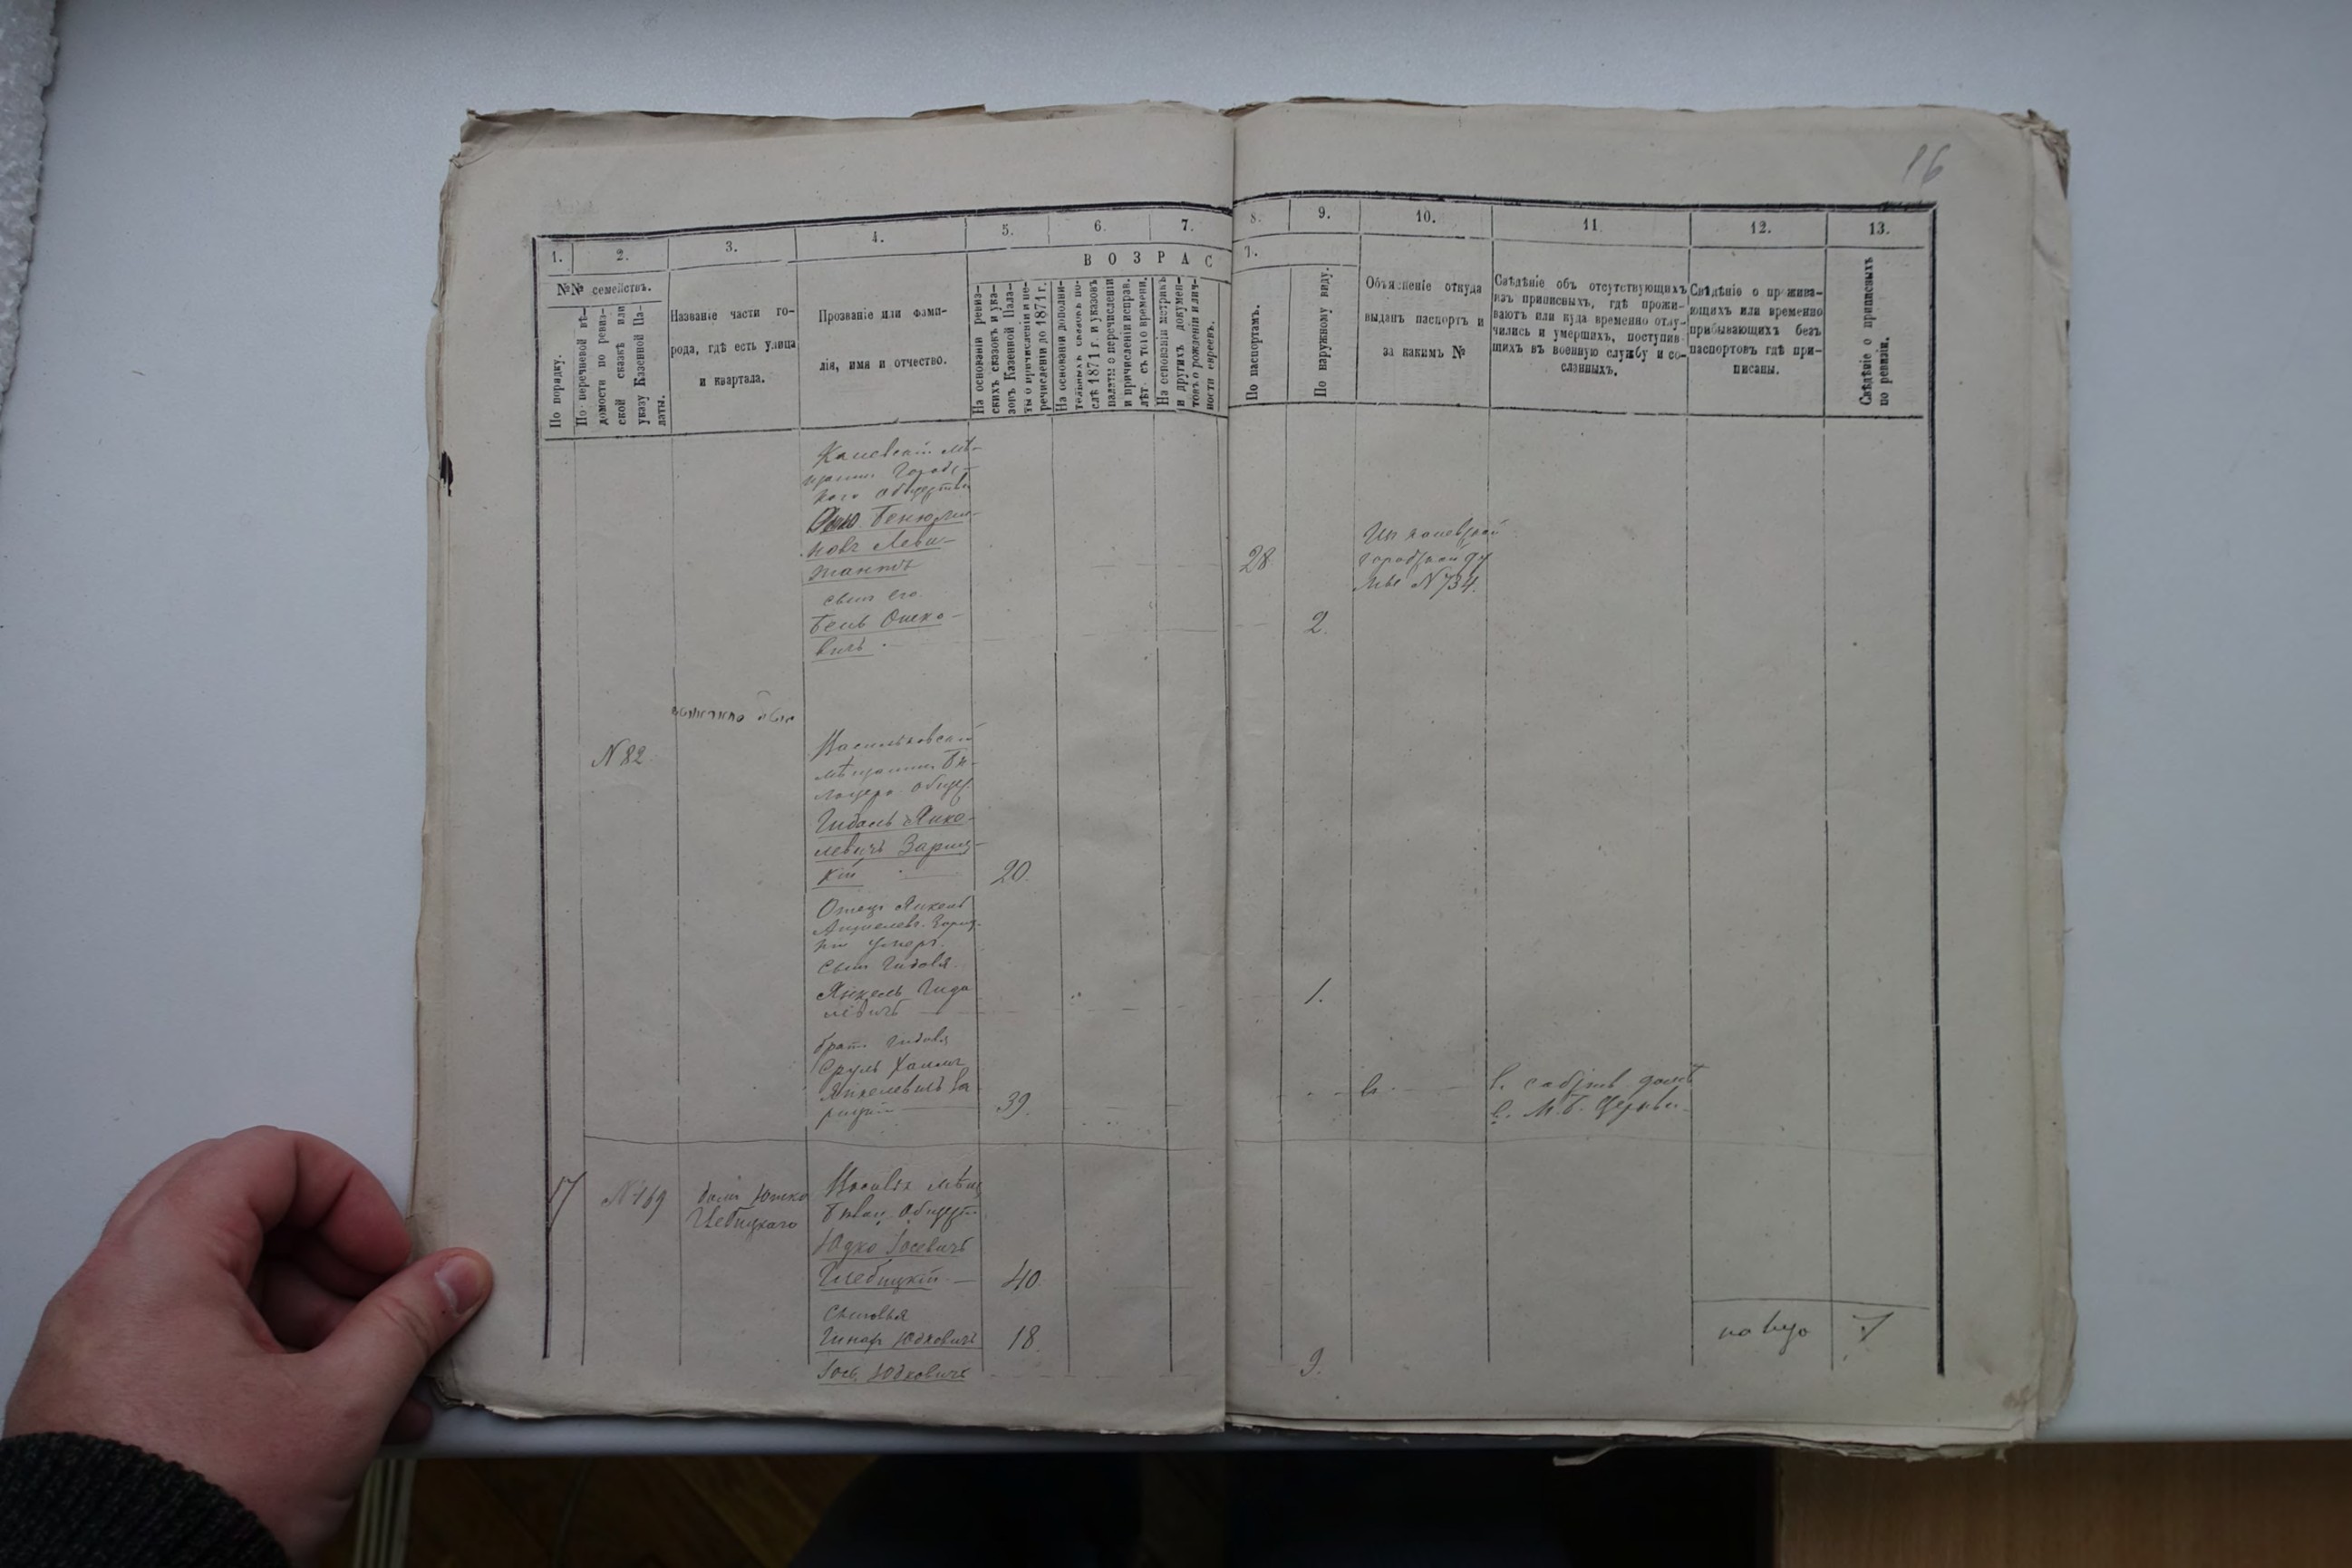 16
1.
2.
3.
4.
5.
6.
7.
8.
9.
10.
11
12.
13.
№№ семействъ.
В О З Р А С
Т.
По порядку.
По перечневой вѣ-
домости по ревиз-
ской сказкѣ или
указу Казенной Па-
латы.
Названіе части го-
рода, гдѣ есть улица
и квартала.
Прозваніе или фами-
лія, имя и отчество.
На основаніи ревиз-
скихъ сказокъ и ука-
зовъ Казенной Пала-
ты о причисленіи и пе-
речисленіи до 1871 г.
На основаніи дополни-
тельныхъ сказокъ по-
слѣ 1871 г. и указовъ
палаты о перечисленіи
и причисленіи исправ.
лѣт. съ того времени.
На основаніи метрикъ
и другихъ докумен-
товъ о рожденіи и лич-
ности евреевъ.
По паспортамъ.
По наружному виду.
Объясненіе откуда
выданъ паспортъ и
за какимъ №
Свѣдѣніе объ отсутствующихъ
изъ приписныхъ, гдѣ прожи-
ваютъ или куда временно отлу-
чились и умершихъ, поступив-
шихъ въ военную службу и со-
сланныхъ.
Свѣдѣніе о прожива-
ющихъ или временно
прибывающихъ безъ
паспортовъ гдѣ при-
писаны.
Свѣдѣніе о приписныхъ
по ревизіи.
Каневскій мѣ-
щанин Городс-
кого общества
Бенюми-
новъ Леви-
тантъ
28
Из каневской
городской ду
мы N 734.
сын его
Бень Ошко-
вичъ
2.
N 82
Васильковскій
мѣщанин Бѣ-
лоцерк. общес.
Гидаль Янке-
левичъ Зариц-
кій
20.
Отец Янкель
Зариц-
кій умеръ.
сын Гидаля
Янкель Гида
левичъ
1.
брат Гидаля
Сруль Хаим
Янкелевичъ За
рицкій
39.
в. М. Б. Церкви.
17
N 169
дом Юшко
Васильк мѣщ
Бѣлоц. Общест
Юдко Іосевичъ
40.
Сыновья
Юдковичъ
18.
Іось Юдковичъ
9.
7